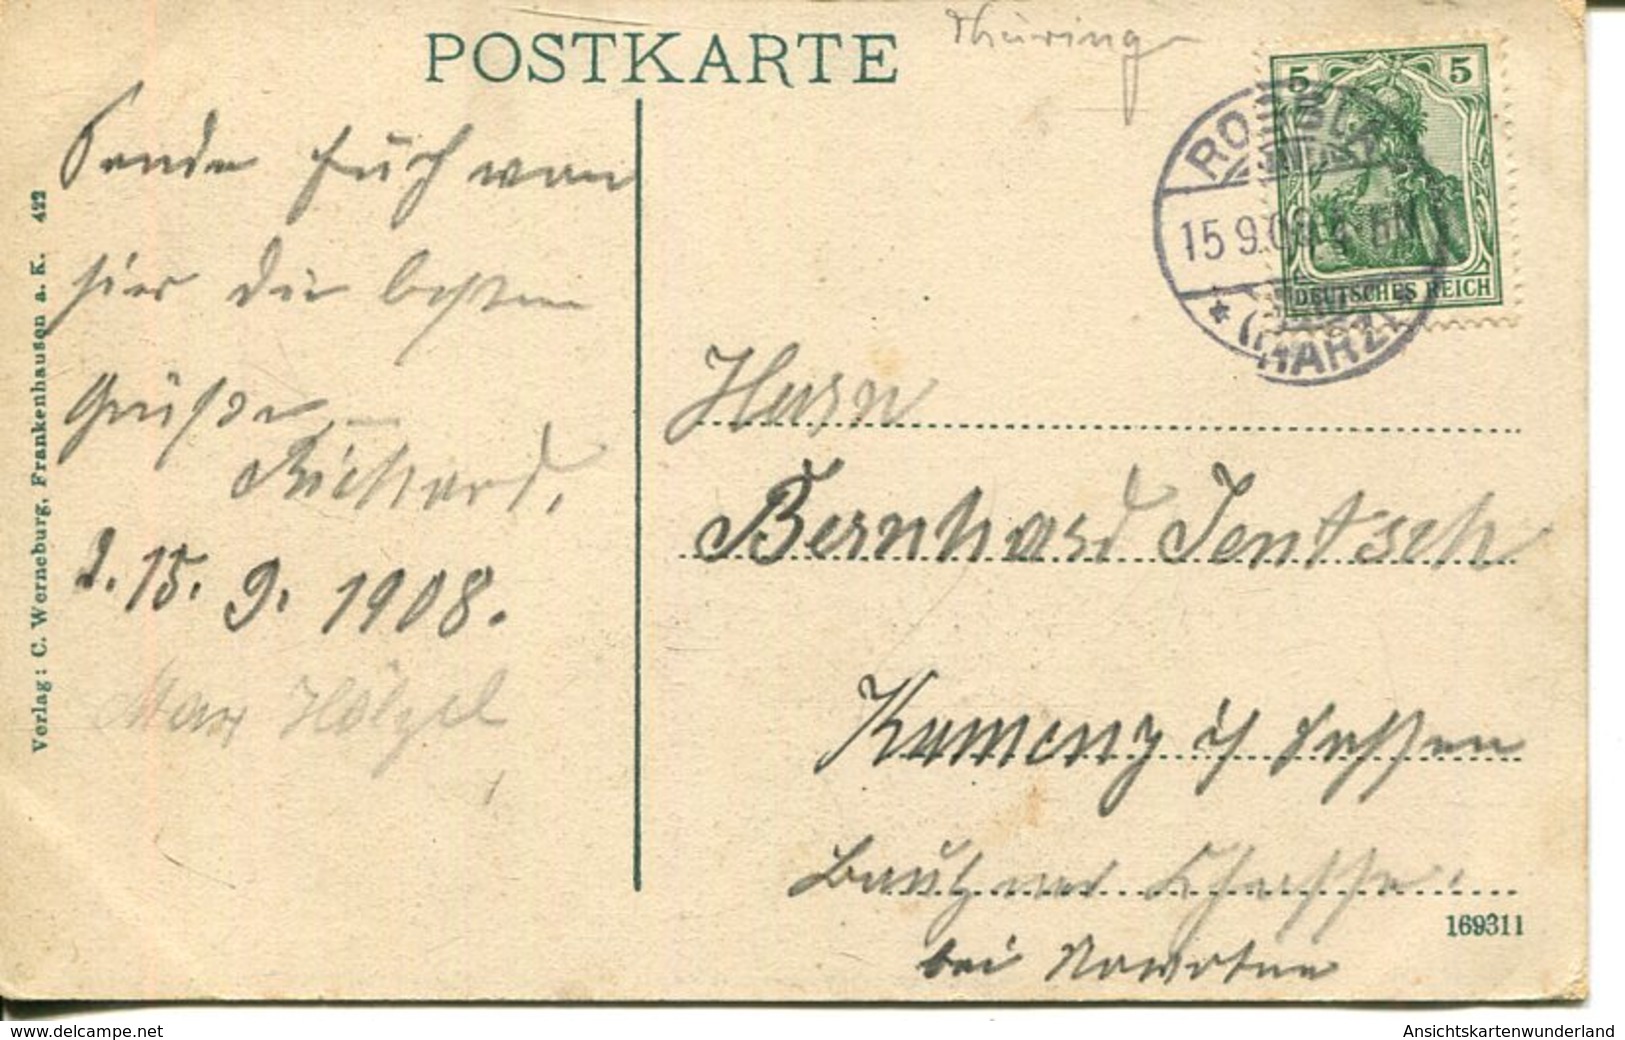 POSTKARTE
Thüring
5 5
DEUTSCHES REICH
RO BLA
15 9.08
(HARZ)
Sende Euch von
hier die besten
Grüße
Richard.
d. 15. 9. 1908.
Max Hölzel
Herrn
Bernhard Jentsch
Kamenz i/ Sachsen
Bautzner Straße.
bei Nowotne
169311
Verlag: C. Werneburg, Frankenhausen a. K. 422
www.delcampe.net
Ansichtskartenwunderland